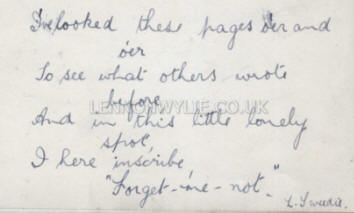 I've looked these pages o'er and
o'er
To see what others wrote
before
LENNONWYLIE.CO.UK
And in this little lonely
spot,
I here inscribe,
"Forget-me-not."